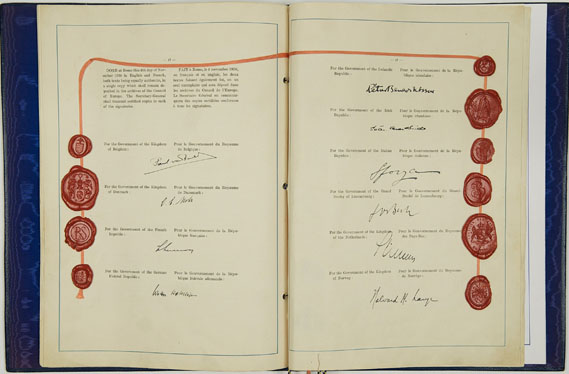 DONE at Rome this 4th day of November 1950 in English and French,
both texts being equally authentic, in
a single copy which shall remain deposited
in the archives of the Council
of Europe. The Secretary-General
shall transmit certified copies to each
of the signatories.
FAIT à Rome, le 4 novembre 1950,
en français et en anglais, les deux
textes faisant également foi, en
un seul exemplaire qui sera déposé dans
les archives du Conseil de l'Europe.
Le Secrétaire Général en communiquera
des copies certifiées conformes à
tous les signataires.
For the Government of the Kingdom
of Belgium:
Pour le Gouvernement du Royaume
de Belgique:
For the Government of the Kingdom
of Denmark:
Pour le Gouvernement du Royaume
de Danemark:
For the Government of the French
Republic:
Pour le Gouvernement de la République
française:
For the Government of the German
Federal Republic:
Pour le Gouvernement de la République
fédérale allemande:
For the Government of the Icelandic
Republic:
Pour le Gouvernement de la République
islandaise:
For the Government of the Irish
Republic:
Pour le Gouvernement de la République
irlandaise:
For the Government of the Italian
Republic:
Pour le Gouvernement de la République
italienne:
Sforza
For the Government of the Grand
Duchy of Luxembourg:
Pour le Gouvernement du Grand
Duché de Luxembourg:
Jos Bech
For the Government of the Kingdom
of the Netherlands:
Pour le Gouvernement du Royaume
des Pays-Bas:
For the Government of the Kingdom
of Norway:
Pour le Gouvernement du Royaume
de Norvège:
Halvard M. Lange